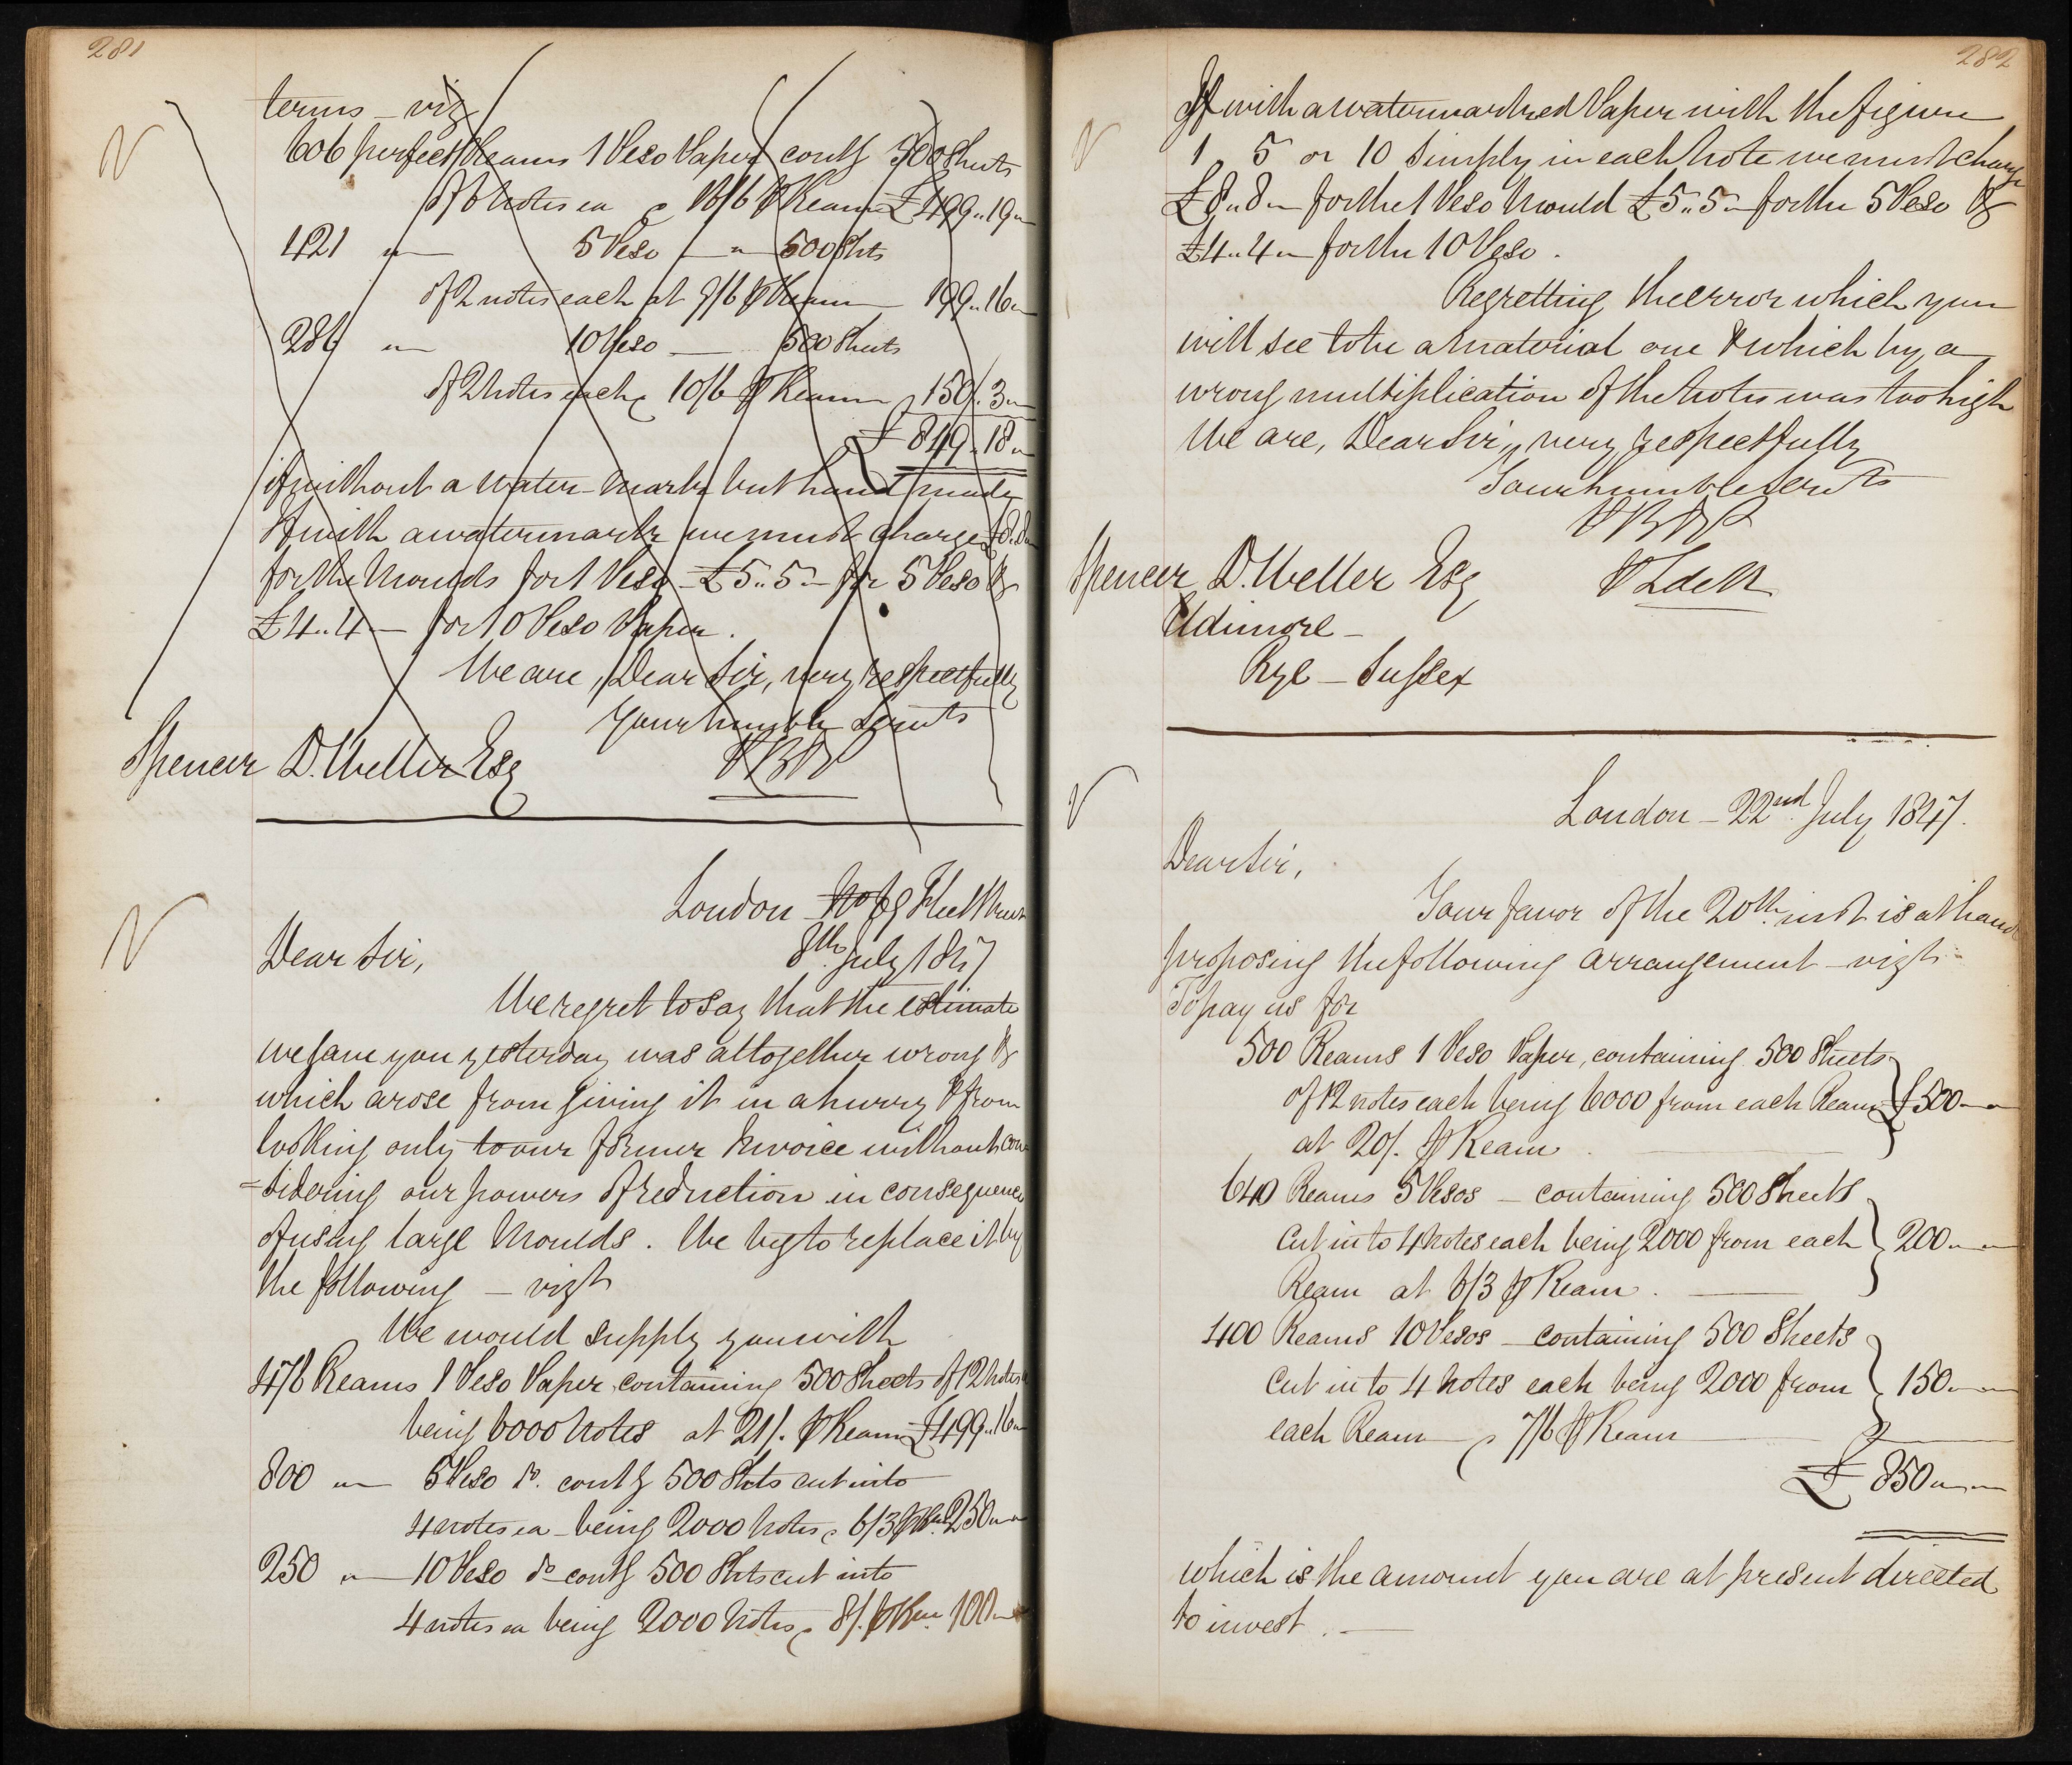 281
terms – viz
606 perfect Reams 1 Peso Paper contg 500 Sheets
of 6 Notes ea @ 16/6 ℔ Ream £499„19„
421 „ 5 Peso „ 500 Shts
of 2 notes each at 9/6 ℔ Ream 199„16„
286 „ 10 Peso 500 Sheets
of 2 Notes each @ 10/6 ℔ Ream 150„3„
£849„18„
if without a Water-mark but hand made
If with a watermark we must charge £8„8„
for the Moulds for 1 Peso £5„5„ for 5 Peso &
£4„4„ for 10 Peso Paper.
We are, Dear Sir, very respectfully
Your humble Servts
PBP
Spencer D. Weller Esq
London – No 69 Fleet Street
8th July 1847
Dear Sir,
We regret to say that the estimate
we gave you yesterday was altogether wrong &
which arose from giving it in a hurry & from
looking only to our former Invoice without con
=sidering our powers of reduction in consequence
of using large Moulds. We beg to replace it by
the following – vizt
We would supply you with
476 Reams 1 Peso Paper containing 500 Sheets of 12 Notes
being 6000 Notes at 21/. ℔ Ream £499„16„
800 „ 5 Peso do. contg 500 Shts cut into
4 notes ea – being 2000 Notes @ 6/3 ℔ Rm 250„„
250 „ 10 Peso do contg 500 Shts cut into
4 notes ea being 2000 Notes @ 8/. ℔ Rm. 100„
282
If with a watermarked Paper with the figure
1, 5 or 10 simply in each Note we must charge
£8„8„ for the 1 Peso Mould £5„5„ for the 5 Peso &
£4„4„ for the 10 Peso.
Regretting the error which you
will see to be a material one & which by a
wrong multiplication of the Notes was too high
We are, Dear Sir, very respectfully
Your humble Servts
PBP
Spencer D. Weller Esq
Udimore –
Rye – Sussex
London – 22nd July 1847.
Dear Sir,
Your favor of the 20th inst is at hand
proposing the following arrangement – vizt
To pay us for
500 Reams 1 Peso Paper, containing 500 Sheets
of 12 notes each being 6000 from each Ream £500„„
at 20/. ℔ Ream
640 Reams 5 Pesos – containing 500 Sheets
cut into 4 Notes each being 2000 from each 200„„
Ream at 6/3 ℔ Ream.
400 Reams 10 Pesos – containing 500 Sheets
cut into 4 Notes each being 2000 from 150„„
each Ream @ 7/6 ℔ Ream
£850„„
which is the amount you are at present directed
to invest. –